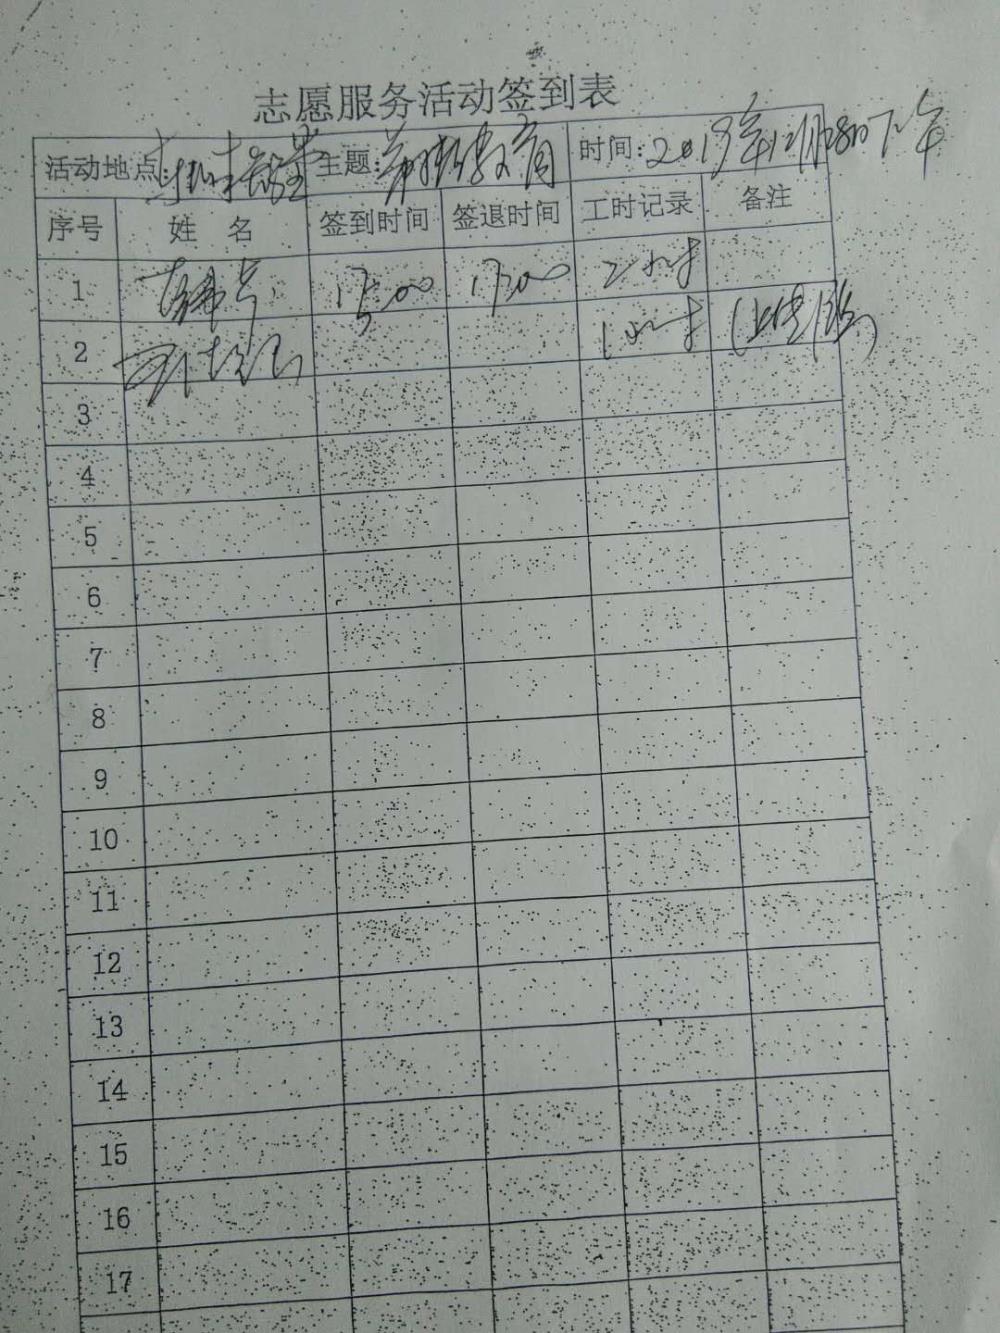 志愿服务活动签到表
活动地点: 主题: 教育 时间: 2019年12月28日下午
序号 姓 名 签到时间 签退时间 工时记录 备注
1 15:00 17:00 2小时
2 1小时
3
4
5
6
7
8
9
10
11
12
13
14
15
16
17